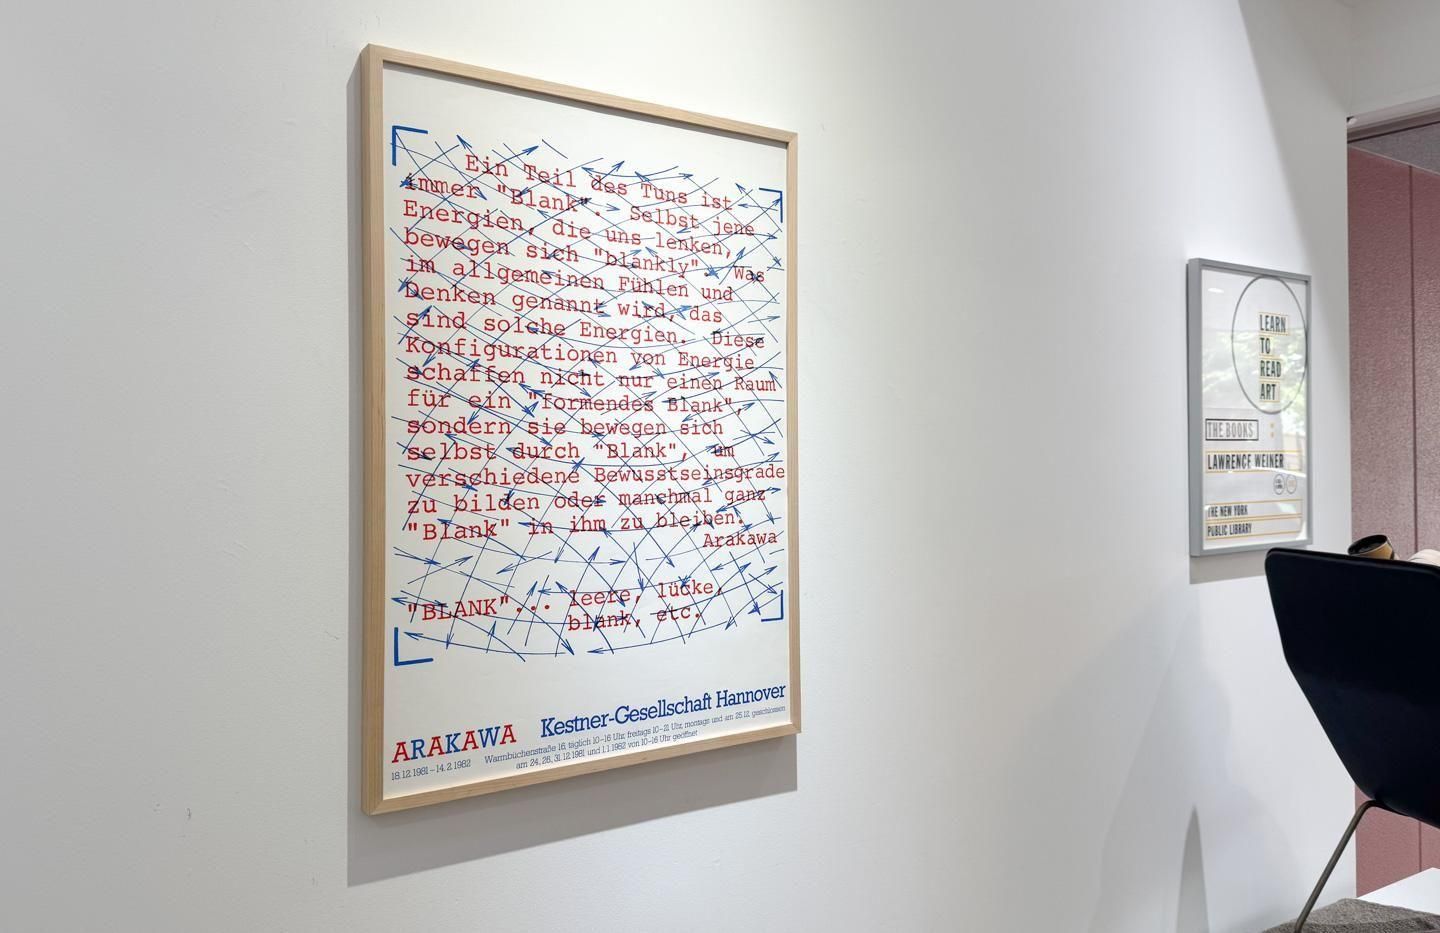 Ein Teil des Tuns ist
immer "Blank". Selbst jene
Energien, die uns lenken,
bewegen sich "blankly". Was
im allgemeinen Fühlen und
Denken genannt wird, das
sind solche Energien. Diese
Konfigurationen von Energie
schaffen nicht nur einen Raum
für ein "formendes Blank",
sondern sie bewegen sich
selbst durch "Blank", um
verschiedene Bewusstseinsgrade
zu bilden oder manchmal ganz
"Blank" in ihm zu bleiben.
Arakawa
"BLANK"... leere, lücke,
blank, etc.
ARAKAWA Kestner-Gesellschaft Hannover
18.12.1981–14.2.1982 Warmbüchenstraße 16, täglich 10–16 Uhr, freitags 10–21 Uhr, montags und am 25.12. geschlossen
am 24., 26., 31.12.1981 und 1.1.1982 von 10–16 Uhr geöffnet
LEARN
TO
READ
ART
THE BOOKS
LAWRENCE WEINER
THE NEW YORK
PUBLIC LIBRARY